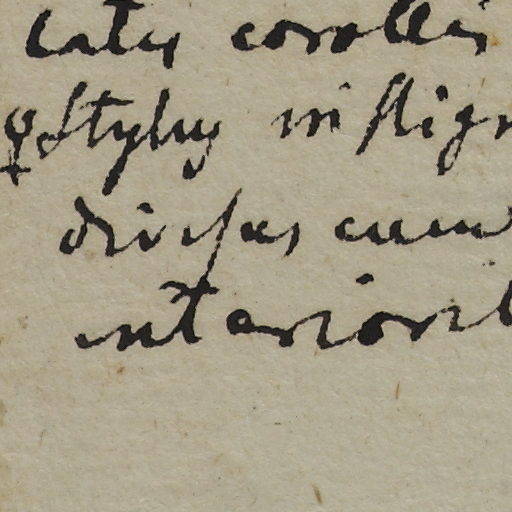 latis corollis
♀ Stylus in stig
divisus cum
interiori